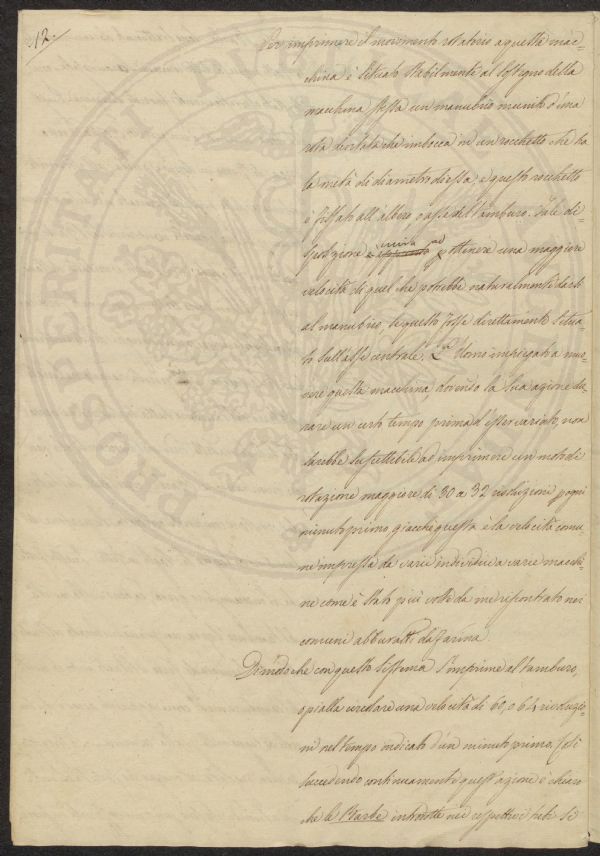 12.
Per imprimere il movimento rotatorio a questa mac-
china è situato stabilmente al sostegno della
macchina stessa un manubrio munito d'una
rota dentata che imbocca in un rocchetto che ha
la metà di diametro di essa, e questo rocchetto
è fissato all'albero o asse del tamburo. Tale di-
sposizione è mira ad ottenere una maggiore
velocità di quel che potrebbe naturalmente darsi
al manubrio, se questo fosse direttamente situa-
to sull'asse centrale. L'Uomo impiegato a muo-
vere questa macchina, dovendo la sua azione du-
rare un certo tempo prima d'esser variato, non
sarebbe suscettibile ad imprimere un moto di
rotazione maggiore di 30 a 32 rivoluzioni p ogni
minuto primo, giacchè questa è la velocità comu-
ne impressa da varii individui a varie macchi-
ne come è stato più volte da me riscontrato nei
comuni abburatti da farina
Di modo che con questo sistema s'imprime al tamburo,
o pialla circolare una velocità di 60, o 64 rivoluzio-
ni nel tempo indicato d'un minuto primo. Così
succedendo continuamente quest'azione è chiaro
che le Barbe introdotte nei rispettivi tubi si